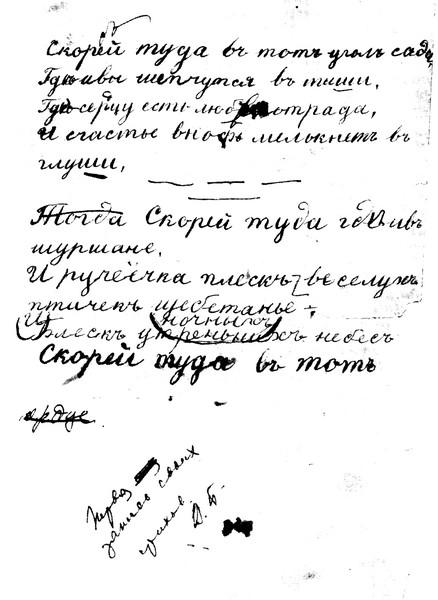 Скорей туда въ тотъ уголъ сада,
Где ивы шепчутся въ тиши,
Где сердцу есть любви отрада,
И счастье вновь мелькнетъ въ
глуши,
Тогда Скорей туда где ивъ
шуршане,
И ручеечка плескъ, веселухъ
птичекъ щебетанье
И
блескъ утреньихъ ночныхъ небесъ
Скорей туда въ тотъ
запись своихъ
стихов